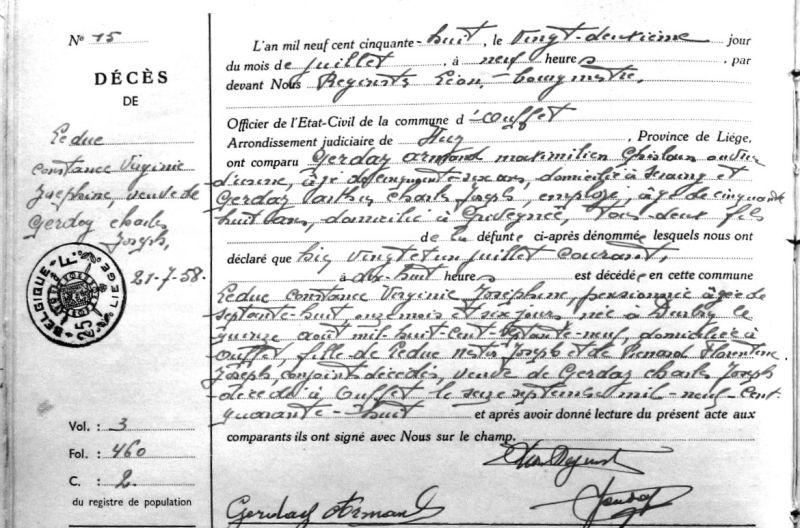 N° 15
DÉCÈS
DE
Leduc
Constance Virginie
Joséphine, veuve de
Gerday Charles
Joseph,
21-7-58.
BELGIQUE
LIEGE
Vol. : 3
Fol. : 460
C. : 2
du registre de population
L'an mil neuf cent cinquante-huit, le vingt-deuxième jour
du mois de juillet, à neuf heures, par
devant Nous Léon, bourgmestre,
Officier de l'Etat-Civil de la commune d'Ouffet
Arrondissement judiciaire de Huy, Province de Liége,
ont comparu Gerday Armand Maximilien Ghislain ouvrier
d'usine, âgé de cinquante-six ans, domicilié à Seraing et
Gerday Charles Joseph, employé, âgé de cinquante
huit ans, domicilié à, tous deux fils
de la défunte ci-après dénommée lesquels nous ont
déclaré que vingt et un juillet courant,
à dix-huit heures est décédée en cette commune
Leduc Constance Virginie Joséphine, pensionnée âgée de
septante-huit, onze mois et six jours née à le
quinze août mil-huit-cent-septante-neuf, domiciliée à
Ouffet, fille de Leduc Joseph et de Florentine
Joseph, conjoints décédés, veuve de Gerday Charles Joseph
décédé à Ouffet le seize septembre mil-neuf-cent-
quarante-huit et après avoir donné lecture du présent acte aux
comparants ils ont signé avec Nous sur le champ.
Gerday Armand